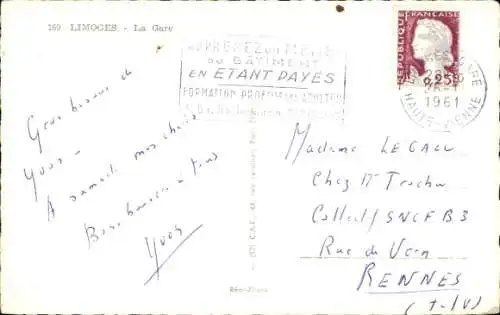 169 LIMOGES - La Gare
APPRENEZ UN METIER
DU BÂTIMENT
EN ETANT PAYÉS
FORMATION PROFESSIONNELLE ADULTES
RÉPUBLIQUE FRANÇAISE
0,25
1961
HAUTE-VIENNE
Gros baisers de
Yvon -
A samedi mes chéris
Bons baisers à tous
Yvon
Madame LE GALL
Chez Mr
Collectif SNCF B3
Rue de Vern
RENNES
(I-&-V)